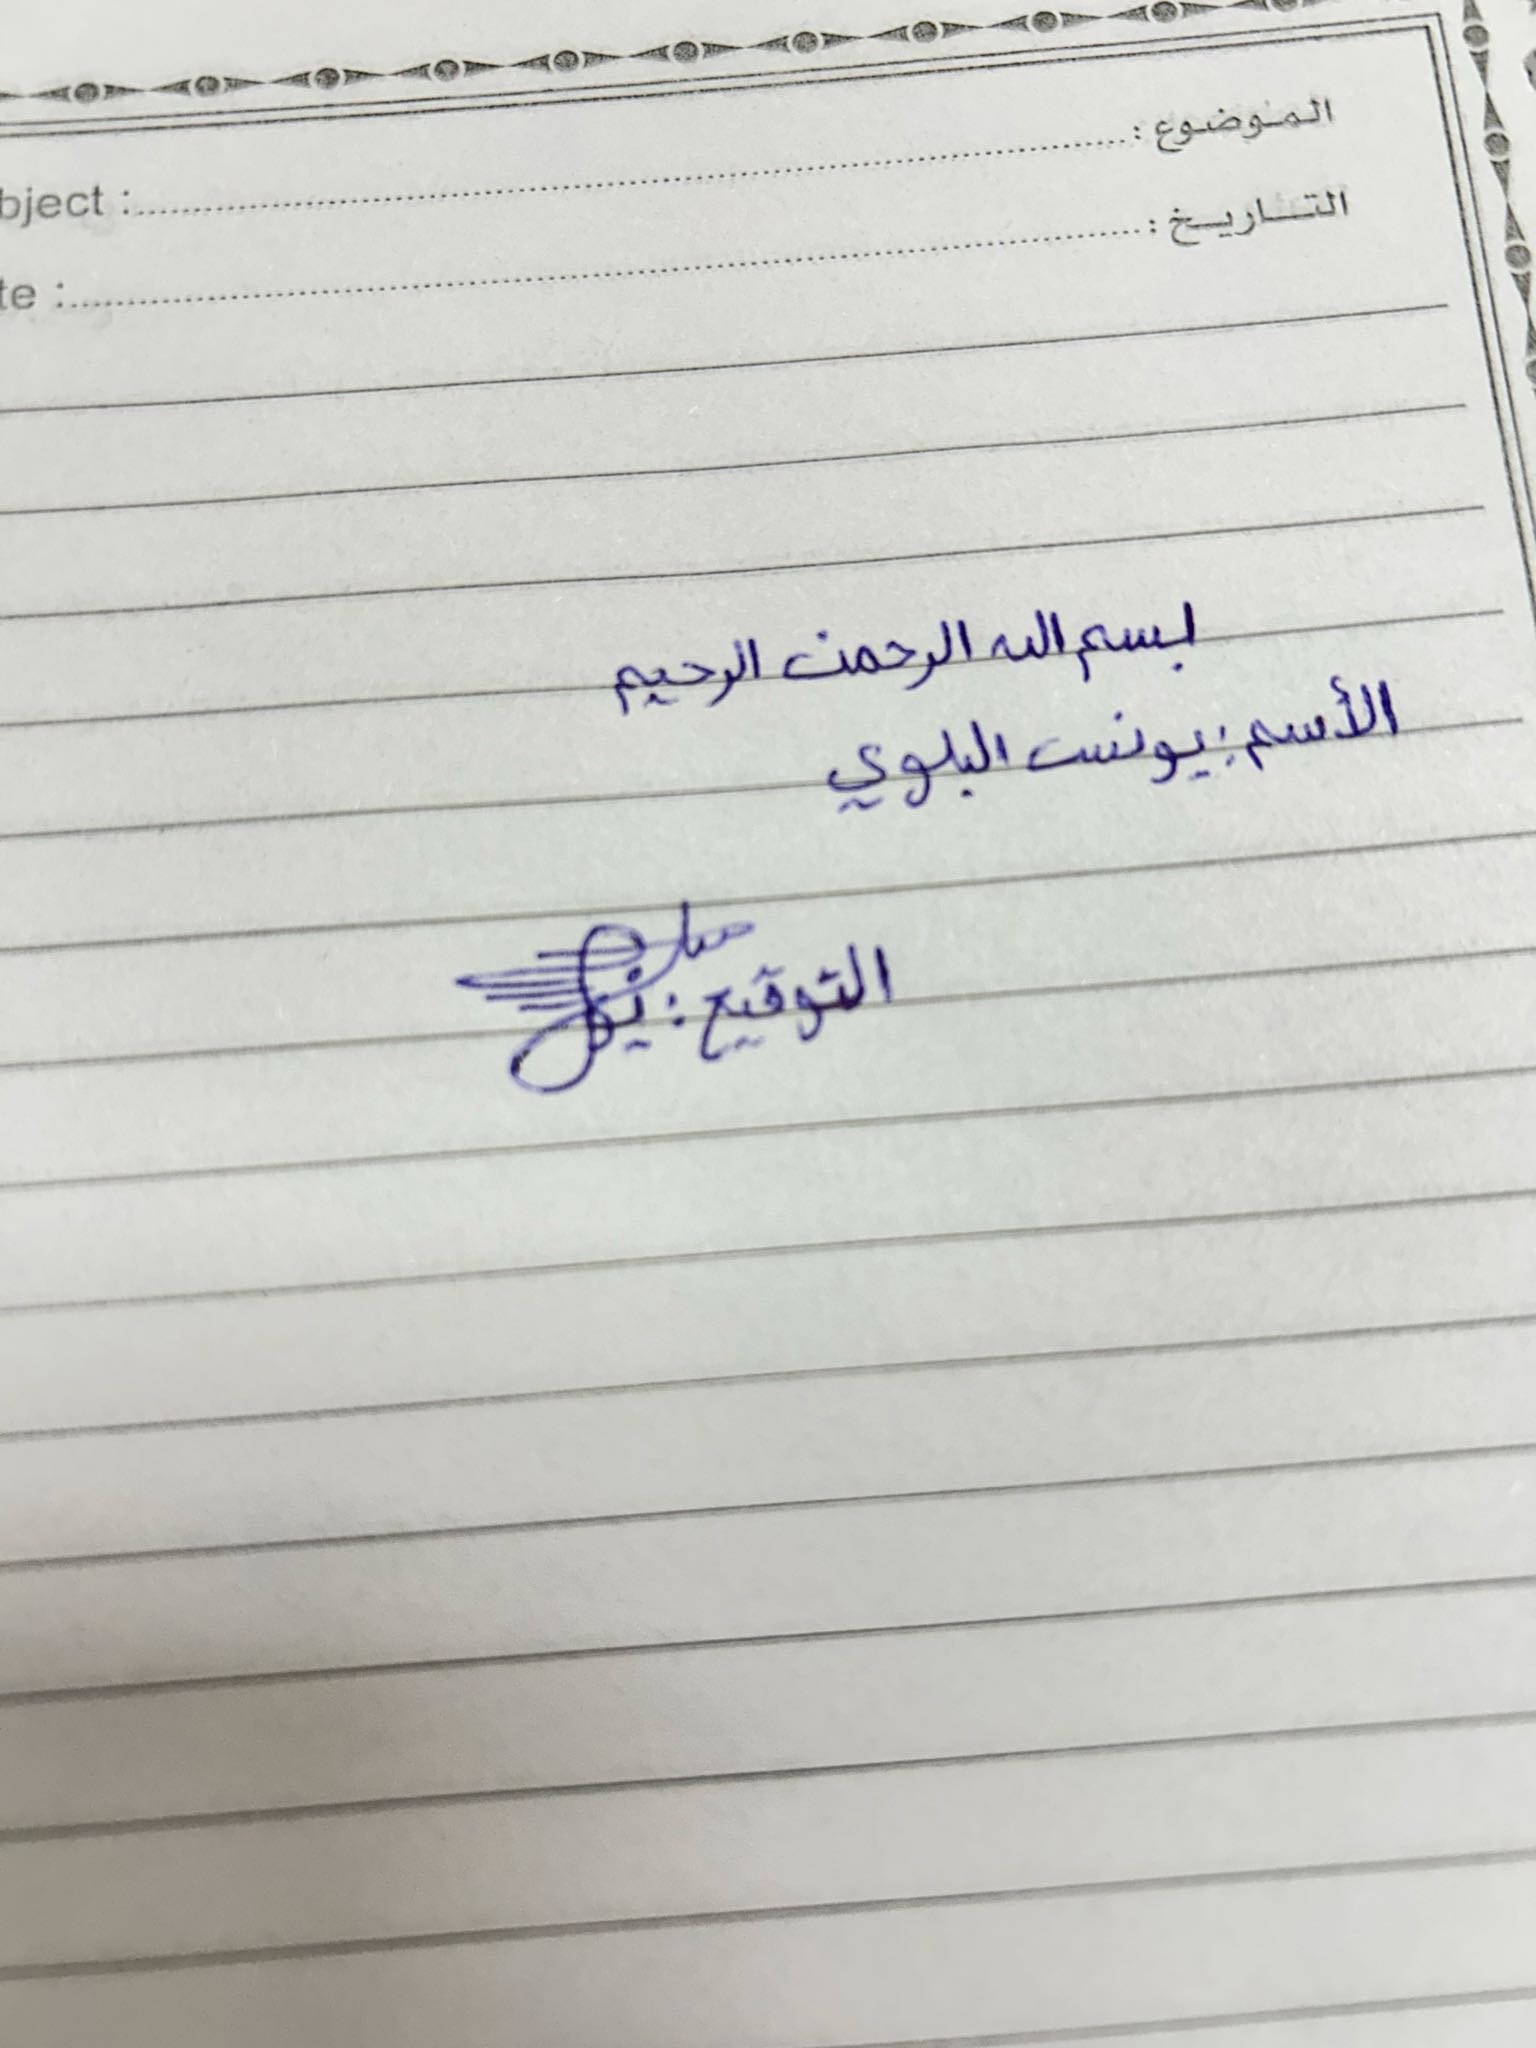 الموضوع :
bject :
التاريخ :
te :
بسم الله الرحمن الرحيم
الأسم : يونس البلوي
التوقيع :